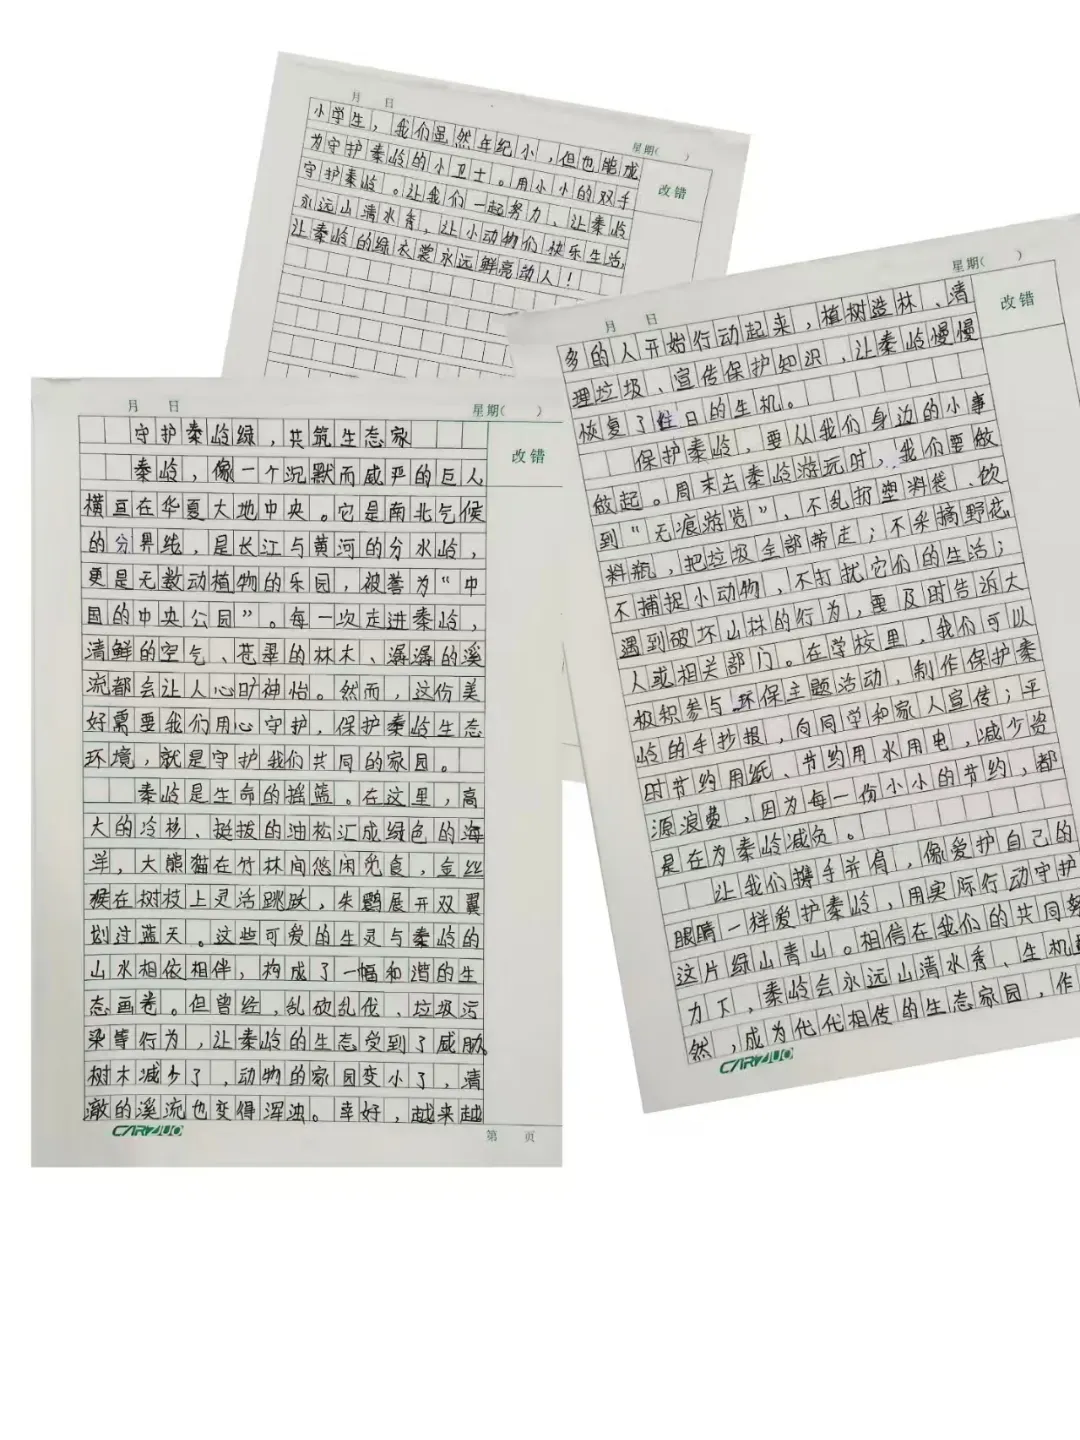 月 日
星期( )
守护秦岭绿，共筑生态家
改错
秦岭，像一个沉默而威严的巨人
横亘在华夏大地中央。它是南北气候
的分界线，是长江与黄河的分水岭，
更是无数动植物的乐园，被誉为“中
国的中央公园”。每一次走进秦岭，
清鲜的空气、苍翠的林木、潺潺的溪
流都会让人心旷神怡。然而，这份美
好需要我们用心守护，保护秦岭生态
环境，就是守护我们共同的家园。
秦岭是生命的摇篮。在这里，高
大的冷杉、挺拔的油松汇成绿色的海
洋，大熊猫在竹林间悠闲觅食，金丝
猴在树枝上灵活跳跃，朱鹮展开双翼
划过蓝天。这些可爱的生灵与秦岭的
山水相依相伴，构成了一幅和谐的生
态画卷。但曾经，乱砍乱伐、垃圾污
染等行为，让秦岭的生态受到了威胁。
树木减少了，动物的家园变小了，清
澈的溪流也变得浑浊。幸好，越来越
CARZUO
第 页
月 日
星期( )
改错
多的人开始行动起来，植树造林、清
理垃圾、宣传保护知识，让秦岭慢慢
恢复了往日的生机。
保护秦岭，要从我们身边的小事
做起。周末去秦岭游玩时，我们要做
到“无痕游览”，不乱扔塑料袋、饮
料瓶，把垃圾全部带走；不采摘野花，
不捕捉小动物，不打扰它们的生活；
遇到破坏山林的行为，要及时告诉大
人或相关部门。在学校里，我们可以
积极参与环保主题活动，制作保护秦
岭的手抄报，向同学和家人宣传；平
时节约用纸、节约用水用电，减少资
源浪费，因为每一份小小的节约，都
是在为秦岭减负。
让我们携手并肩，像爱护自己的
眼睛一样爱护秦岭，用实际行动守护
这片绿山青山。相信在我们的共同努
力下，秦岭会永远山清水秀、生机
然，成为代代相传的生态家园，作
CARZUO
月 日
星期( )
改错
小学生，我们虽然年纪小，但也能成
为守护秦岭的小卫士。用小小的双手
守护秦岭。让我们一起努力、让秦岭
永远山清水秀，让小动物们快乐生活，
让秦岭的绿衣裳永远鲜亮动人！